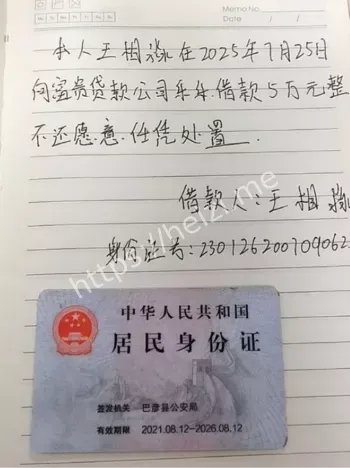 Memo No.
Mo Tu We Th Fr Sa Su
Date / /
本人王相淼在2025年7月25日
向富贵贷款公司乐乐借款5万元整
不还愿意任凭处置
借款人:王相淼
身份证号:230126200709062
https://heizi.me
中华人民共和国
居民身份证
签发机关 巴彦县公安局
有效期限 2021.08.12-2026.08.12